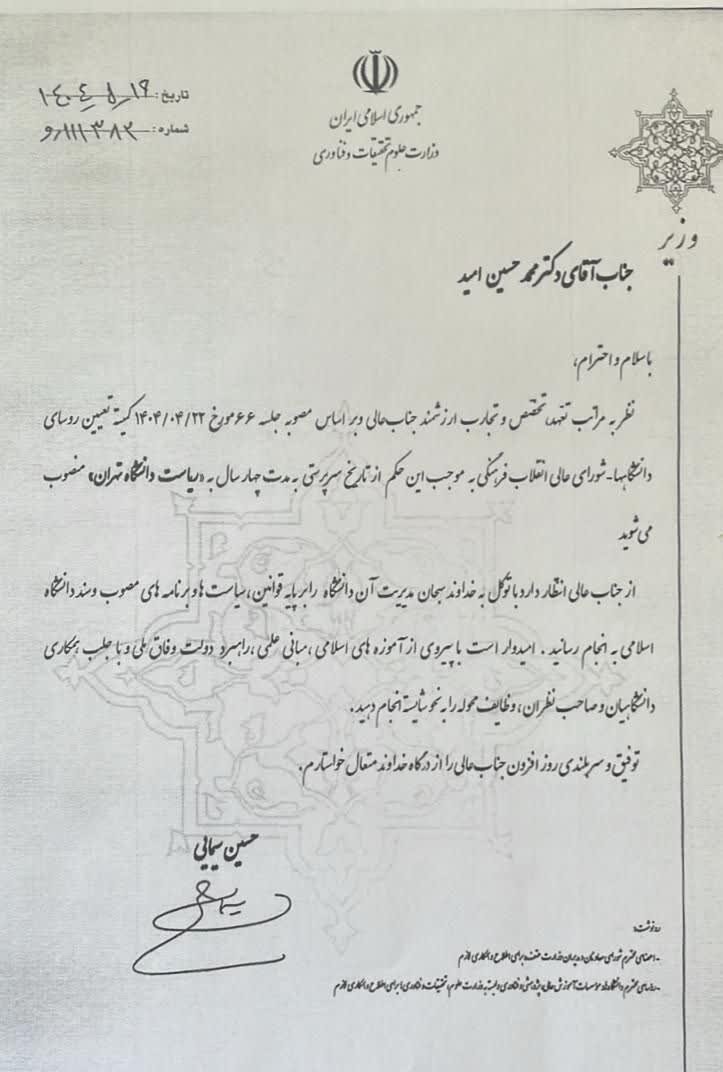 جمهوری اسلامی ایران
وزارت علوم تحقیقات و فناوری
تاریخ: ۱۴۰۴،۵،۱۶
شماره: ۹/۱۱۱۳۸۲
وزیر
جناب آقای دکتر محمد حسین امید
با سلام و احترام،
نظر به مراتب تعهد، تخصص و تجارب ارزشمند جناب‌عالی و بر اساس مصوبه جلسه ۶۶ مورخ ۱۴۰۴/۰۴/۲۲ کمیته تعیین روسای
دانشگاهها-شورای عالی انقلاب فرهنگی به موجب این حکم از تاریخ سرپرستی به مدت چهار سال به «ریاست دانشگاه تهران» منصوب
می شوید
از جناب عالی انتظار دارد با توکل به خداوند سبحان مدیریت آن دانشگاه را بر پایه قوانین، سیاست ها و برنامه های مصوب و سند دانشگاه
اسلامی به انجام رسانید. امیدوار است با پیروی از آموزه های اسلامی، مبانی علمی، راهبرد دولت وفاق ملی و با جلب همکاری
دانشگاهیان و صاحب نظران، وظایف محوله را به نحو شایسته انجام دهید.
توفیق و سربلندی روز افزون جناب‌عالی را از درگاه خداوند متعال خواستارم.
حسین سیمایی
رونوشت:
-اعضای محترم شورای معاونان و مدیران وزارت متبوع برای اطلاع و همکاری لازم
-روسای محترم دانشگاه‌ها و موسسات آموزش عالی، پژوهشی و فناوری وابسته به وزارت علوم، تحقیقات و فناوری برای اطلاع و همکاری لازم